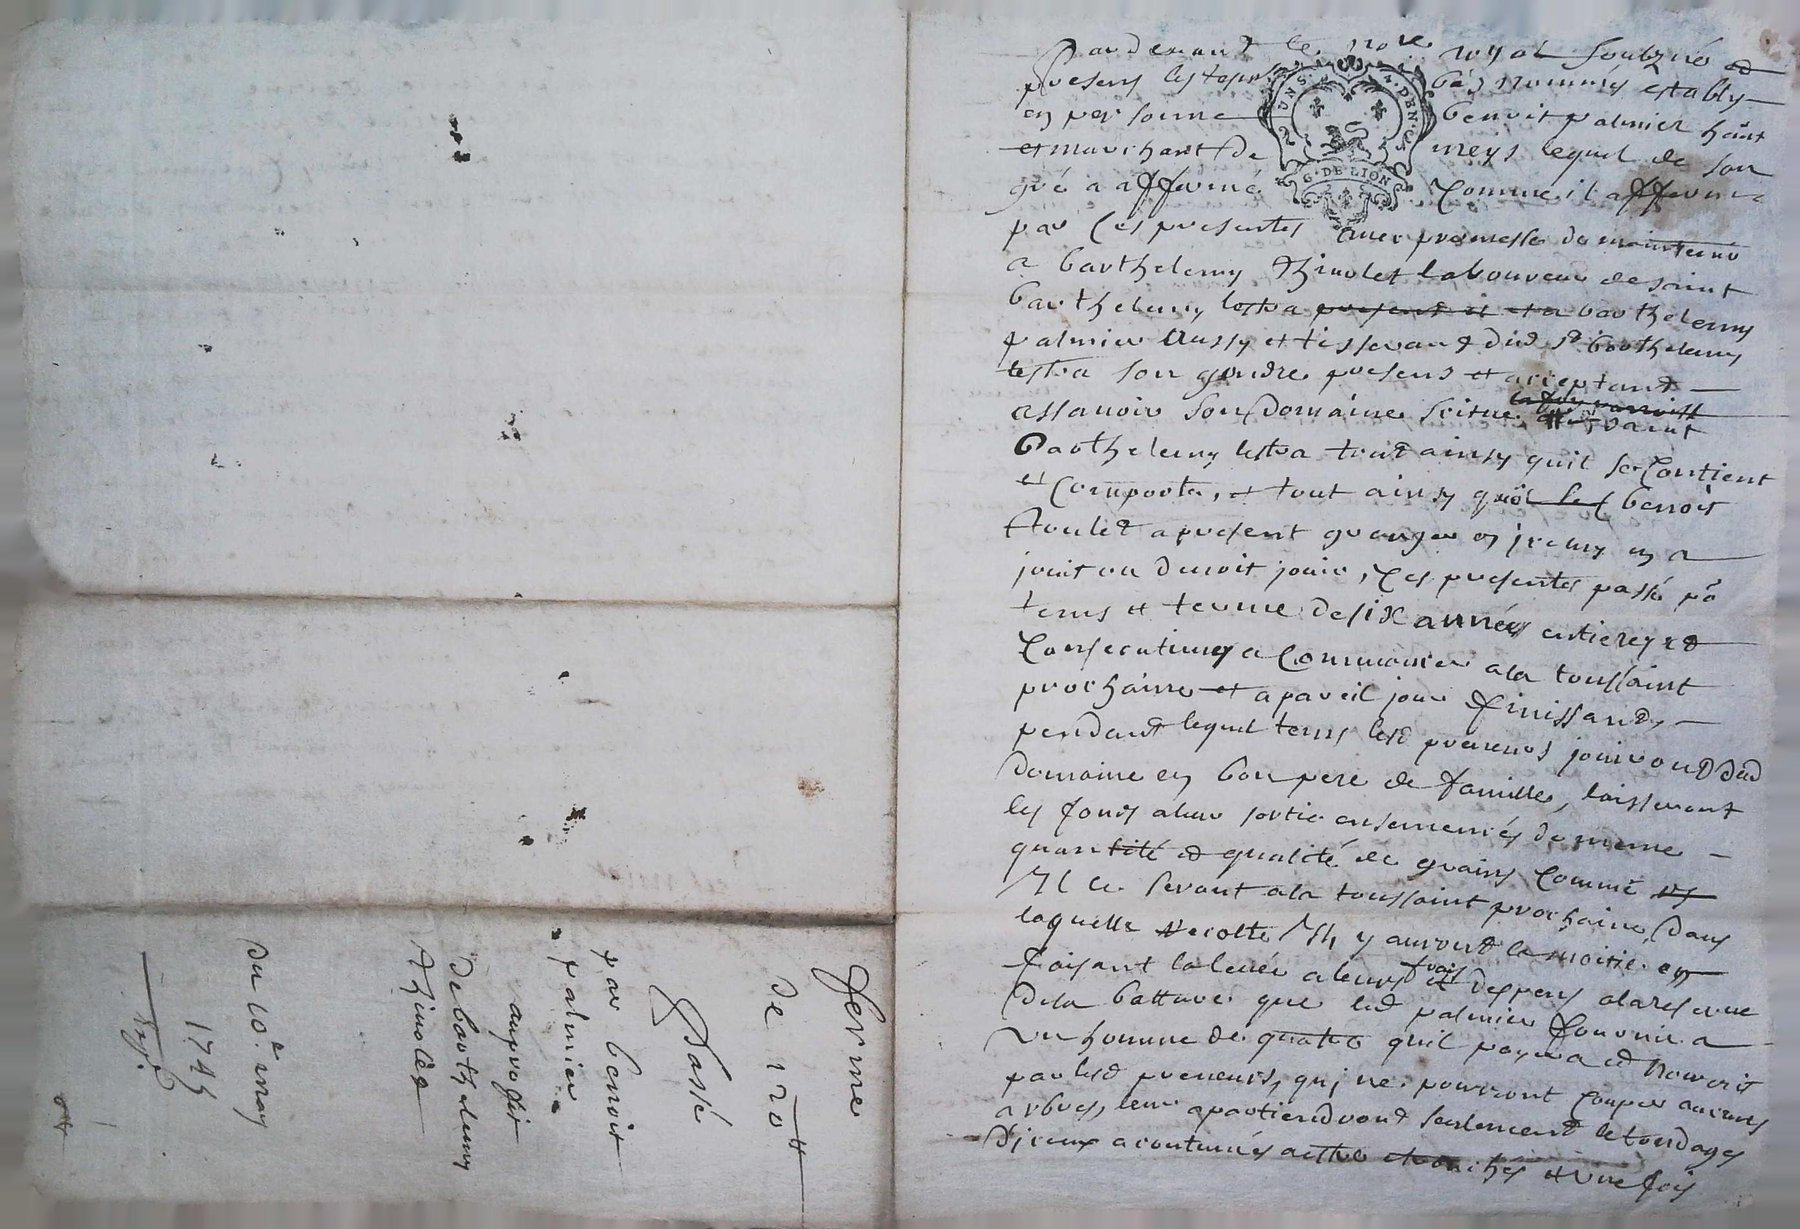 Pardevant le no.re royal soubzné et
presens les tesmoins bas nommés estably
en personne benoit palmier hâut
et marchant de meys lequel de son
gré a affermé comme il afferme
par ces presentes avec promesse de maintenir
a barthelemy thinolet laboureur de saint
barthelemy lestra present et et a barthelemy
palmier aussy et tisserand dud St barthelemy
lestra son gendre presens et acceptant
assavoir son domaine scitué saint
Barthelemy lestra tout ainsy quil se contient
et comporte, et tout ainsy que benoit
a present granger en iceluy en a
jouit ou devoit jouir, ces presentes passé po
tems et terme de six années entieres et
consecutives a commancer a la toussaint
prochaine et a pareil jour finissand,
pendant lequel tems lesd preneurs jouiront dud
domaine en bon pere de famille, laisseront
les fonds a leur sortie ensemencés de meme
quantité et qualité de grains comme
ils le seront a la toussaint prochaine, dans
laquelle recolte ils y auront la moitié en
faisant la levée a leurs frais et despens a la reserve
de la batture que led palmier fournira
un homme de quatre quil payera et nourrit
par lesd preneurs, qui ne pourront couper aucuns
arbres, leur apartiendront seulement le tondages
d'iceux acoutumés aestre et une fois
UNS. D.DEN.CS
G. DE LION
ferme
de 170 tt
Passé
par benoit
palmier
au profit
De barthelemy
thinolet
du 10e may
1745